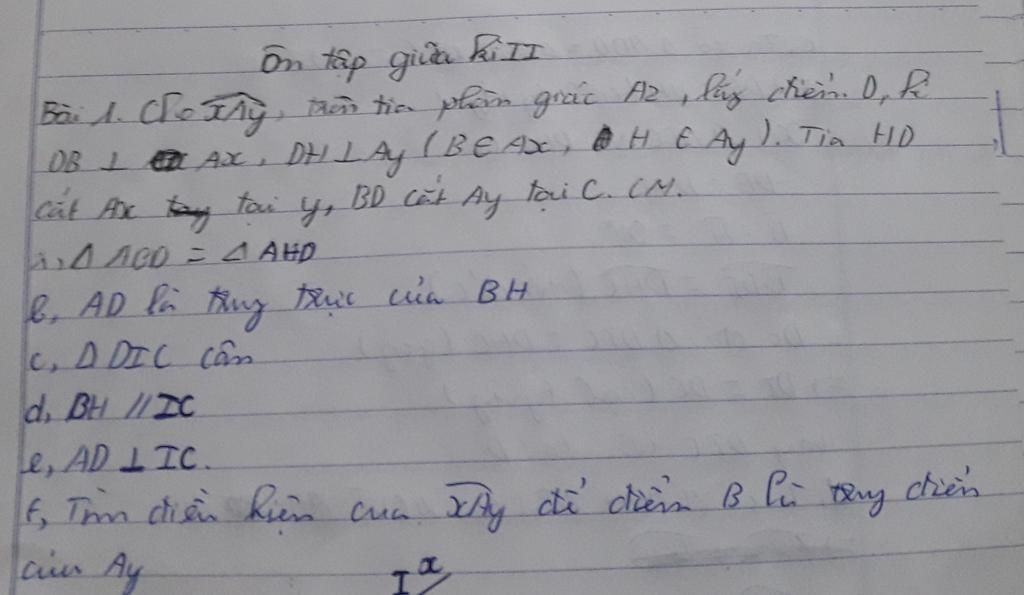 Ôn tập giữa kì II
Bài 1. Cho xAy, trên tia phân giác Az, lấy điểm D, kẻ
DB ⊥ Ax, DH ⊥ Ay (B ∈ Ax, H ∈ Ay). Tia HD
cắt Ax tại y, BD cắt Ay tại C. CM.
a, Δ ABD = Δ AHD
b, AD là trung trực của BH
c, Δ DIC cân
d, BH // IC
e, AD ⊥ IC.
f, Tìm điều kiện của xAy để điểm B là trung điểm
của Ay
I x